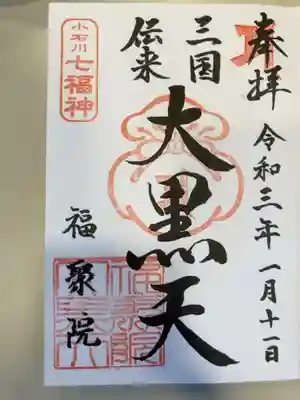 奉拝
令和三年一月十一日
三国
伝来
大黒天
小石川
七福神
福聚院